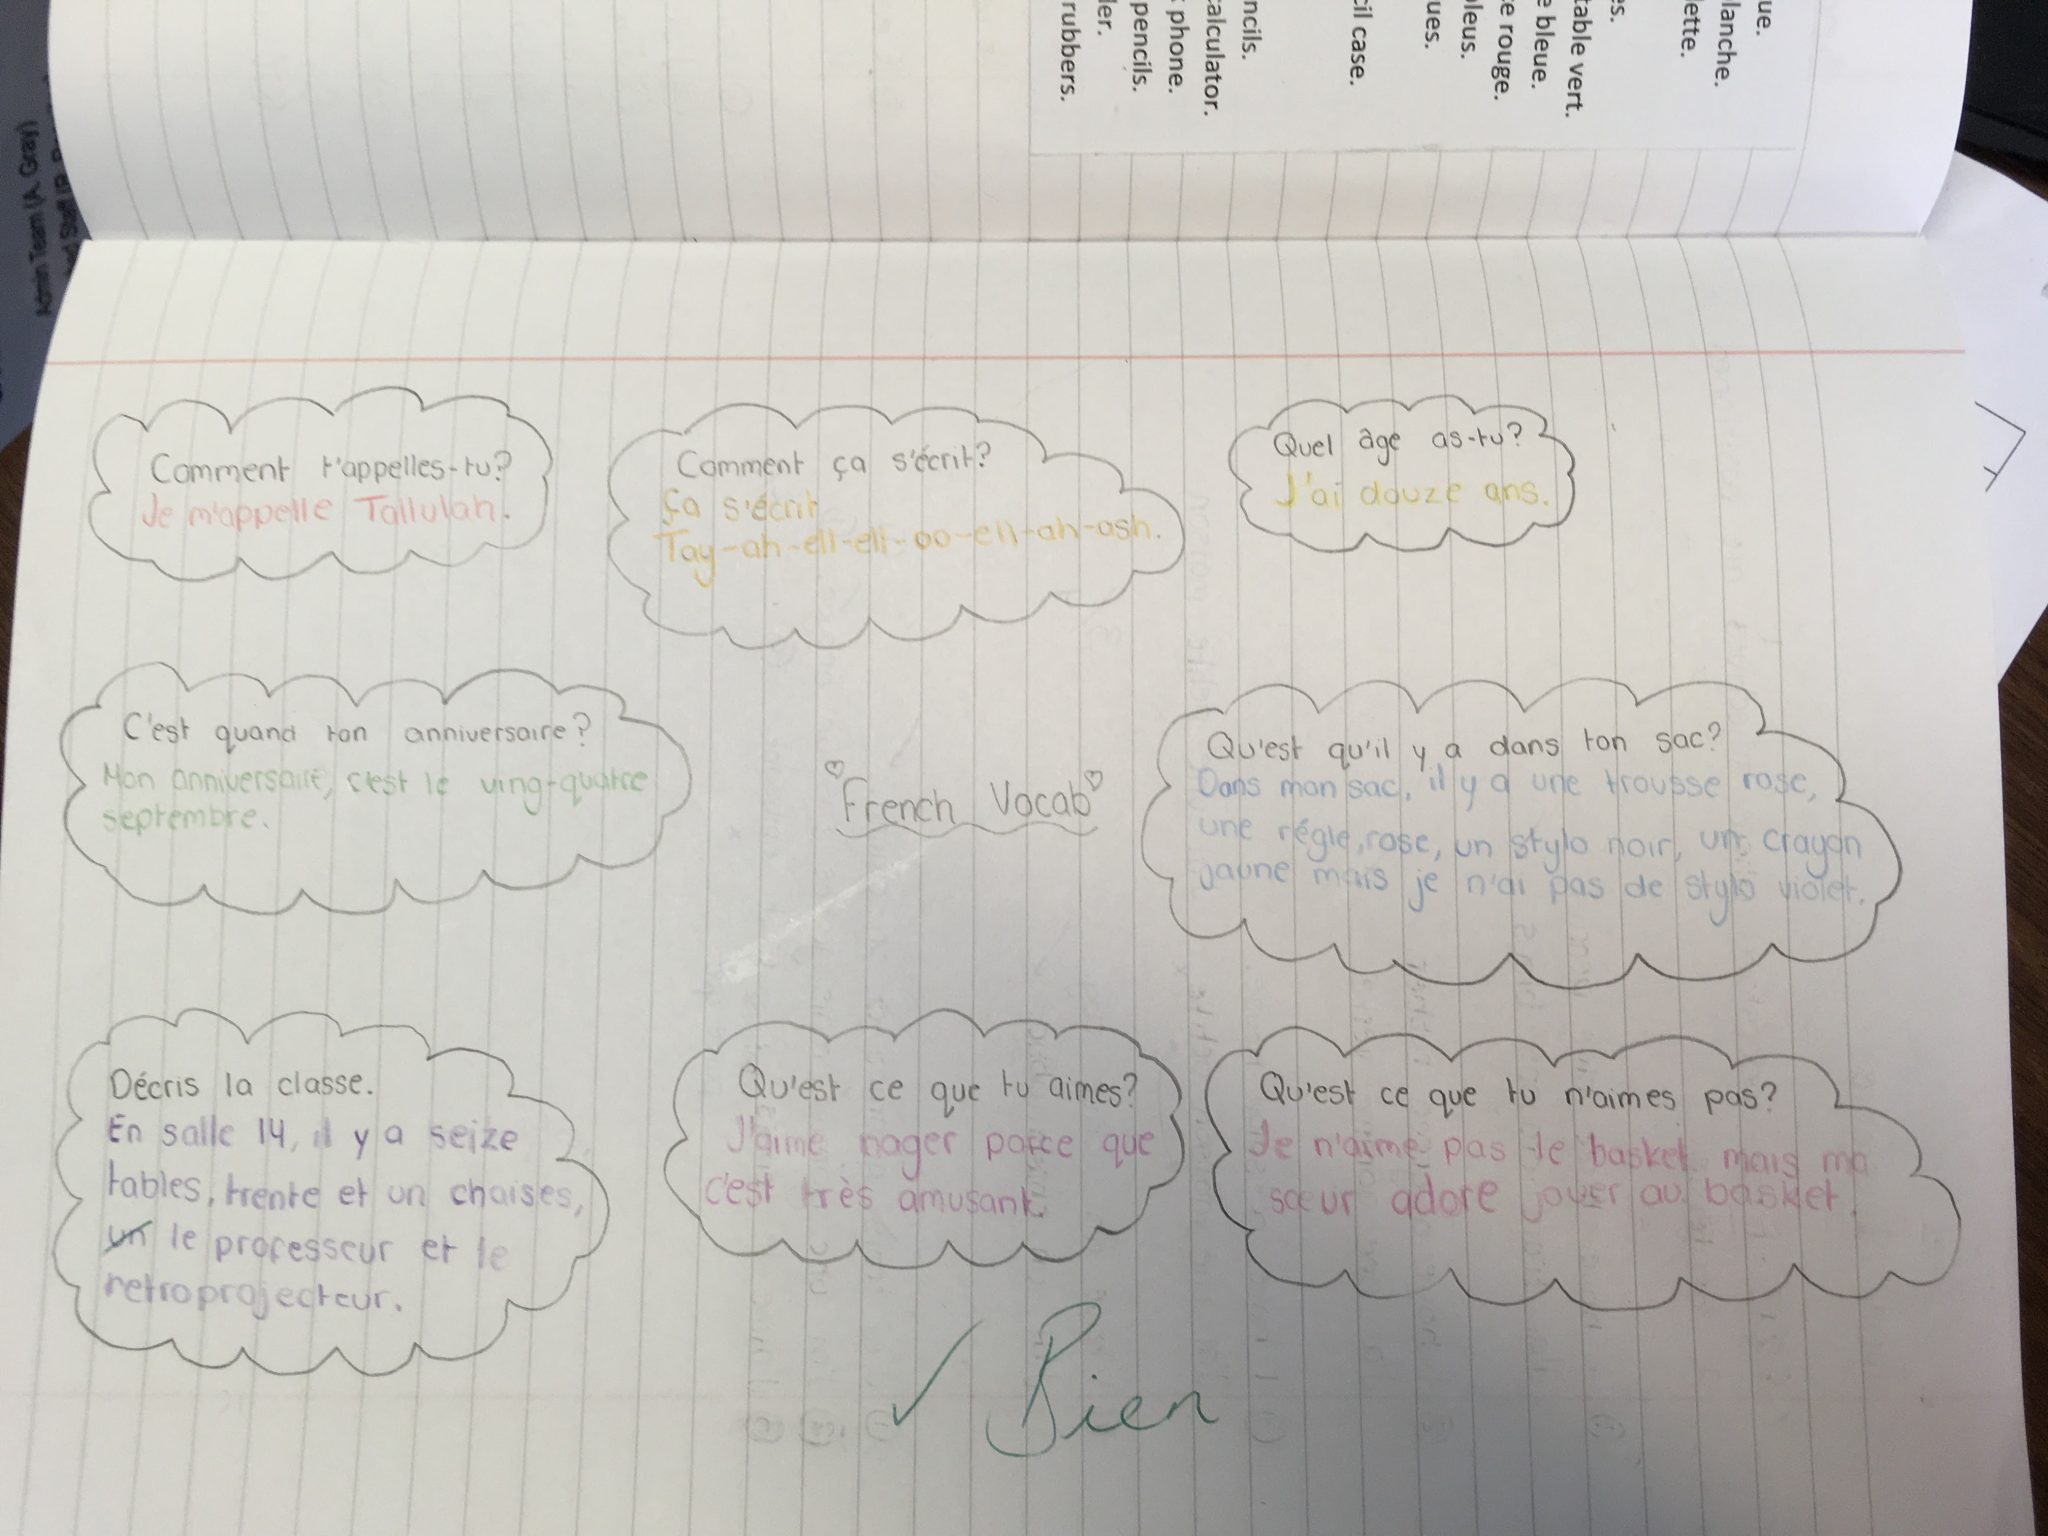 ncils.
calculator.
phone.
pencils.
rubbers.
cil case.
ues.
bleus.
rouge.
bleue.
table vert.
es.
lette.
lanche.
ue.
Comment t'appelles-tu?
Je m'appelle Tallulah.
Comment ça s'écrit?
Ça s'écrit
Tay-ah-ell-ell-oo-ell-ah-ash.
Quel âge as-tu?
J'ai douze ans.
C'est quand ton anniversaire?
Mon anniversaire, c'est le ving-quatre
septembre.
French Vocab
Qu'est qu'il y a dans ton sac?
Dans mon sac, il y a une trousse rose,
une régle, rose, un stylo noir, un crayon
jaune mais je n'ai pas de stylo violet.
Décris la classe.
En salle 14, il y a seize
tables, trente et un chaises,
un le professeur et le
retroprojecteur.
Qu'est ce que tu aimes?
J'aime nager parce que
c'est très amusant.
Qu'est ce que tu n'aimes pas?
Je n'aime pas le basket mais ma
sœur adore jouer au basket.
Bien